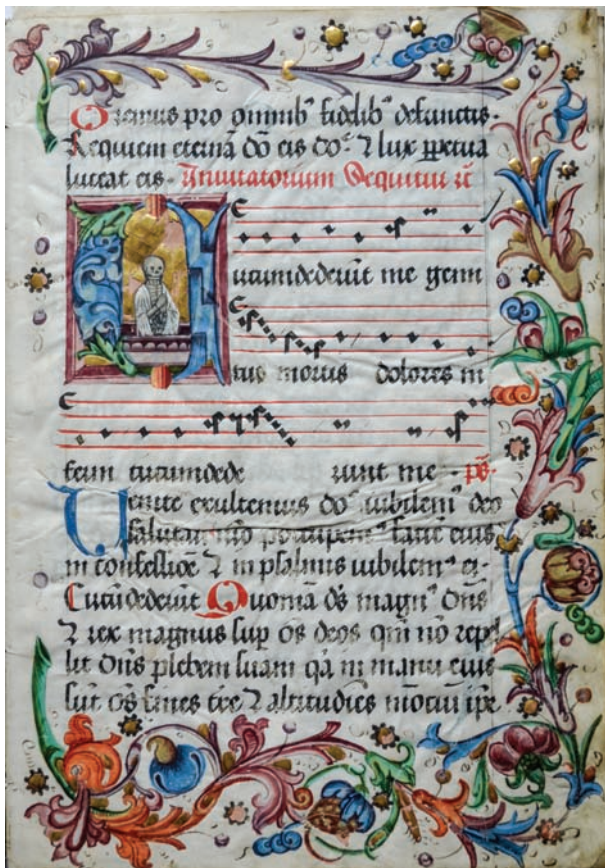 Oremus pro omnib⁹ fidelib⁹ defunctis.
Requiem eternā dō eis do⁹. ⁊ lux ꝑpetua
luceat eis. Inuitatorium
ircundederūt me gemi
tus mortis dolores in
ferni circundede runt me. ps̄.
Uenite exultemus do⁹ iubilem⁹ deo
salutari nr̄o preocupem⁹ faciē eius
in confessiōe ⁊ in psalmis iubilem⁹ ei.
Circūdederūt Quoniā ds̄ magn⁹ dn̄s
⁊ rex magnus sup os̄ deos qm̄ nō repel
lit dn̄s plebem suam q̄a in manu eius
sūt os̄ fines tr̄e ⁊ altitudies mōtiū ipe